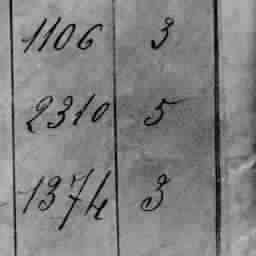 1106 3
2310 5
1374 3